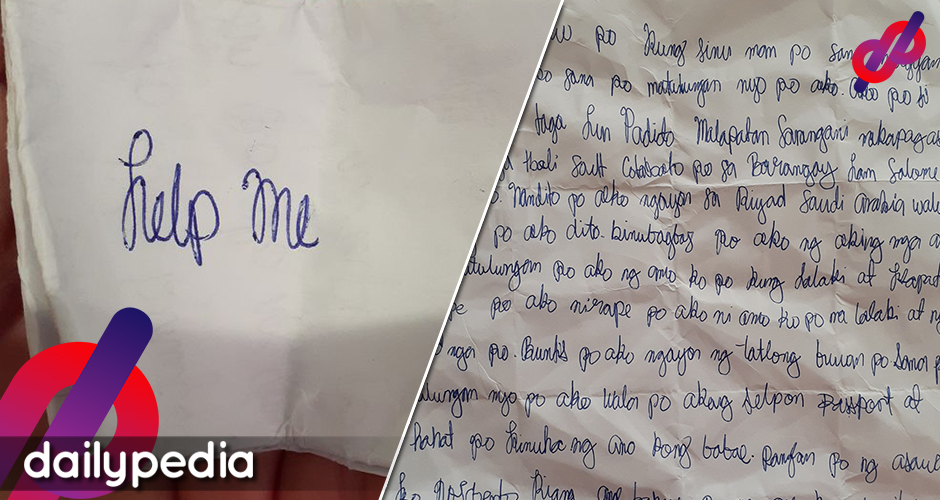 help Me
po kung sinu man po sana
sana po matulungan nyo po ako. ako po si
taga Lun Padido Malapatan Sarangani nakapagas
tboli South Cotabato po sa Barangay Lam Salome
Nandito po ako ngayon sa Riyad Saudi arabia wala
po ako dito. binubugbog po ako ng aking mga a
tulungan po ako ng amo ko po kung lalaki at kapat
po ako nirape po ako ni amo ko po na lalaki at ng
nga po. Buntis po ako ngayon ng tatlong buwan po sana p
tulungan nyo po ako wala po akong selpon passport at
lahat po kinuha ng amo kong babae. pangan po ng asawa
ko Norberto
dailypedia